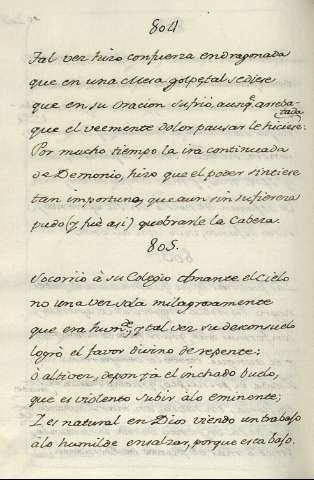 804
Tal vez hizo con fuerza endragonada
que en una Mesa golpe tal se diese
que en su oracion sufrió, aunq.e arreba-
tada
que el veemente dolor pausar le hiciese.
Por mucho tiempo la ira continuada
de Demonio, hizo que el poder sintiese
tan importuna, que aun sin sufierera
pudo (y fuè asi) quebrarle la Cabeza.
805.
Socorriò à su Colegio Amante el Cielo
no una vez sola milagrosamente
que era hum.de, y tal vez su desconsuelo
logrò el favor divino de repente;
ò altivez, depon yà el inchado buelo,
que es violento subir àlo eminente;
I es natural en Dios viendo un trabajo
àlo humilde ensalzar, porque esta bajo.